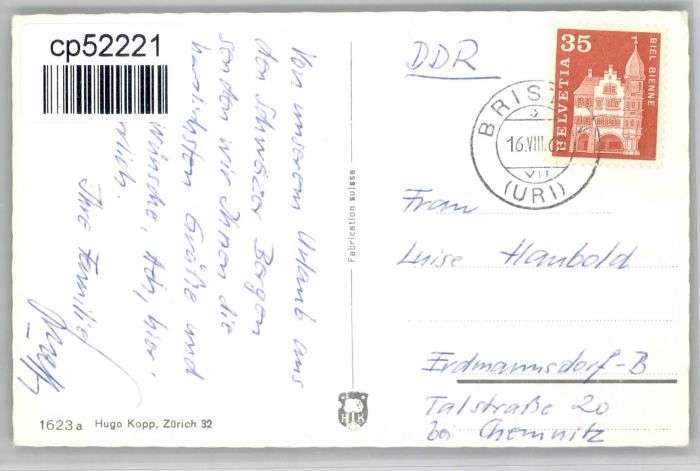 cp52221
Von unserem Urlaub aus
den Schweizer Bergen
senden wir Ihnen die
herzlichsten Grüße und
Wünsche,
Ihre Familie
1623a Hugo Kopp, Zürich 32
Fabrication suisse
HK
DDR
35
HELVETIA
BIEL BIENNE
BRIS
16.VIII.6
VII
(URI)
Frau
Luise Haubold
Erdmannsdorf-B
Talstraße 20
bei Chemnitz